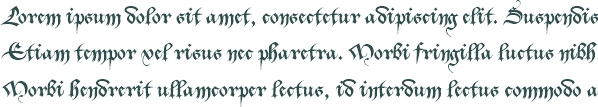 Lorem ipsum dolor sit amet, consectetur adipiscing elit. Suspendis
Etiam tempor vel risus nec pharetra. Morbi fringilla luctus nibh
Morbi hendrerit ullamcorper lectus, id interdum lectus commodo a